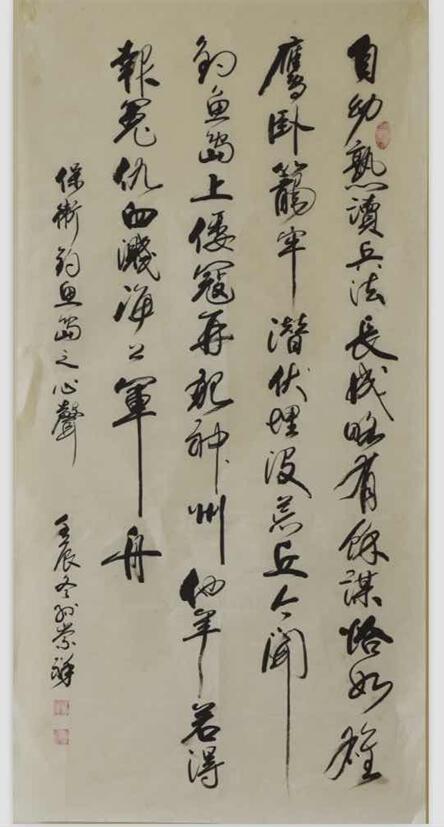 自幼熟讀兵法長成略有餘謀恰如雄
鷹卧籠牢潛伏埋没荒丘今聞
釣魚島上倭寇再犯神州他年若得
報冤仇血濺海上軍舟
保衛釣魚島之心聲
壬辰冬